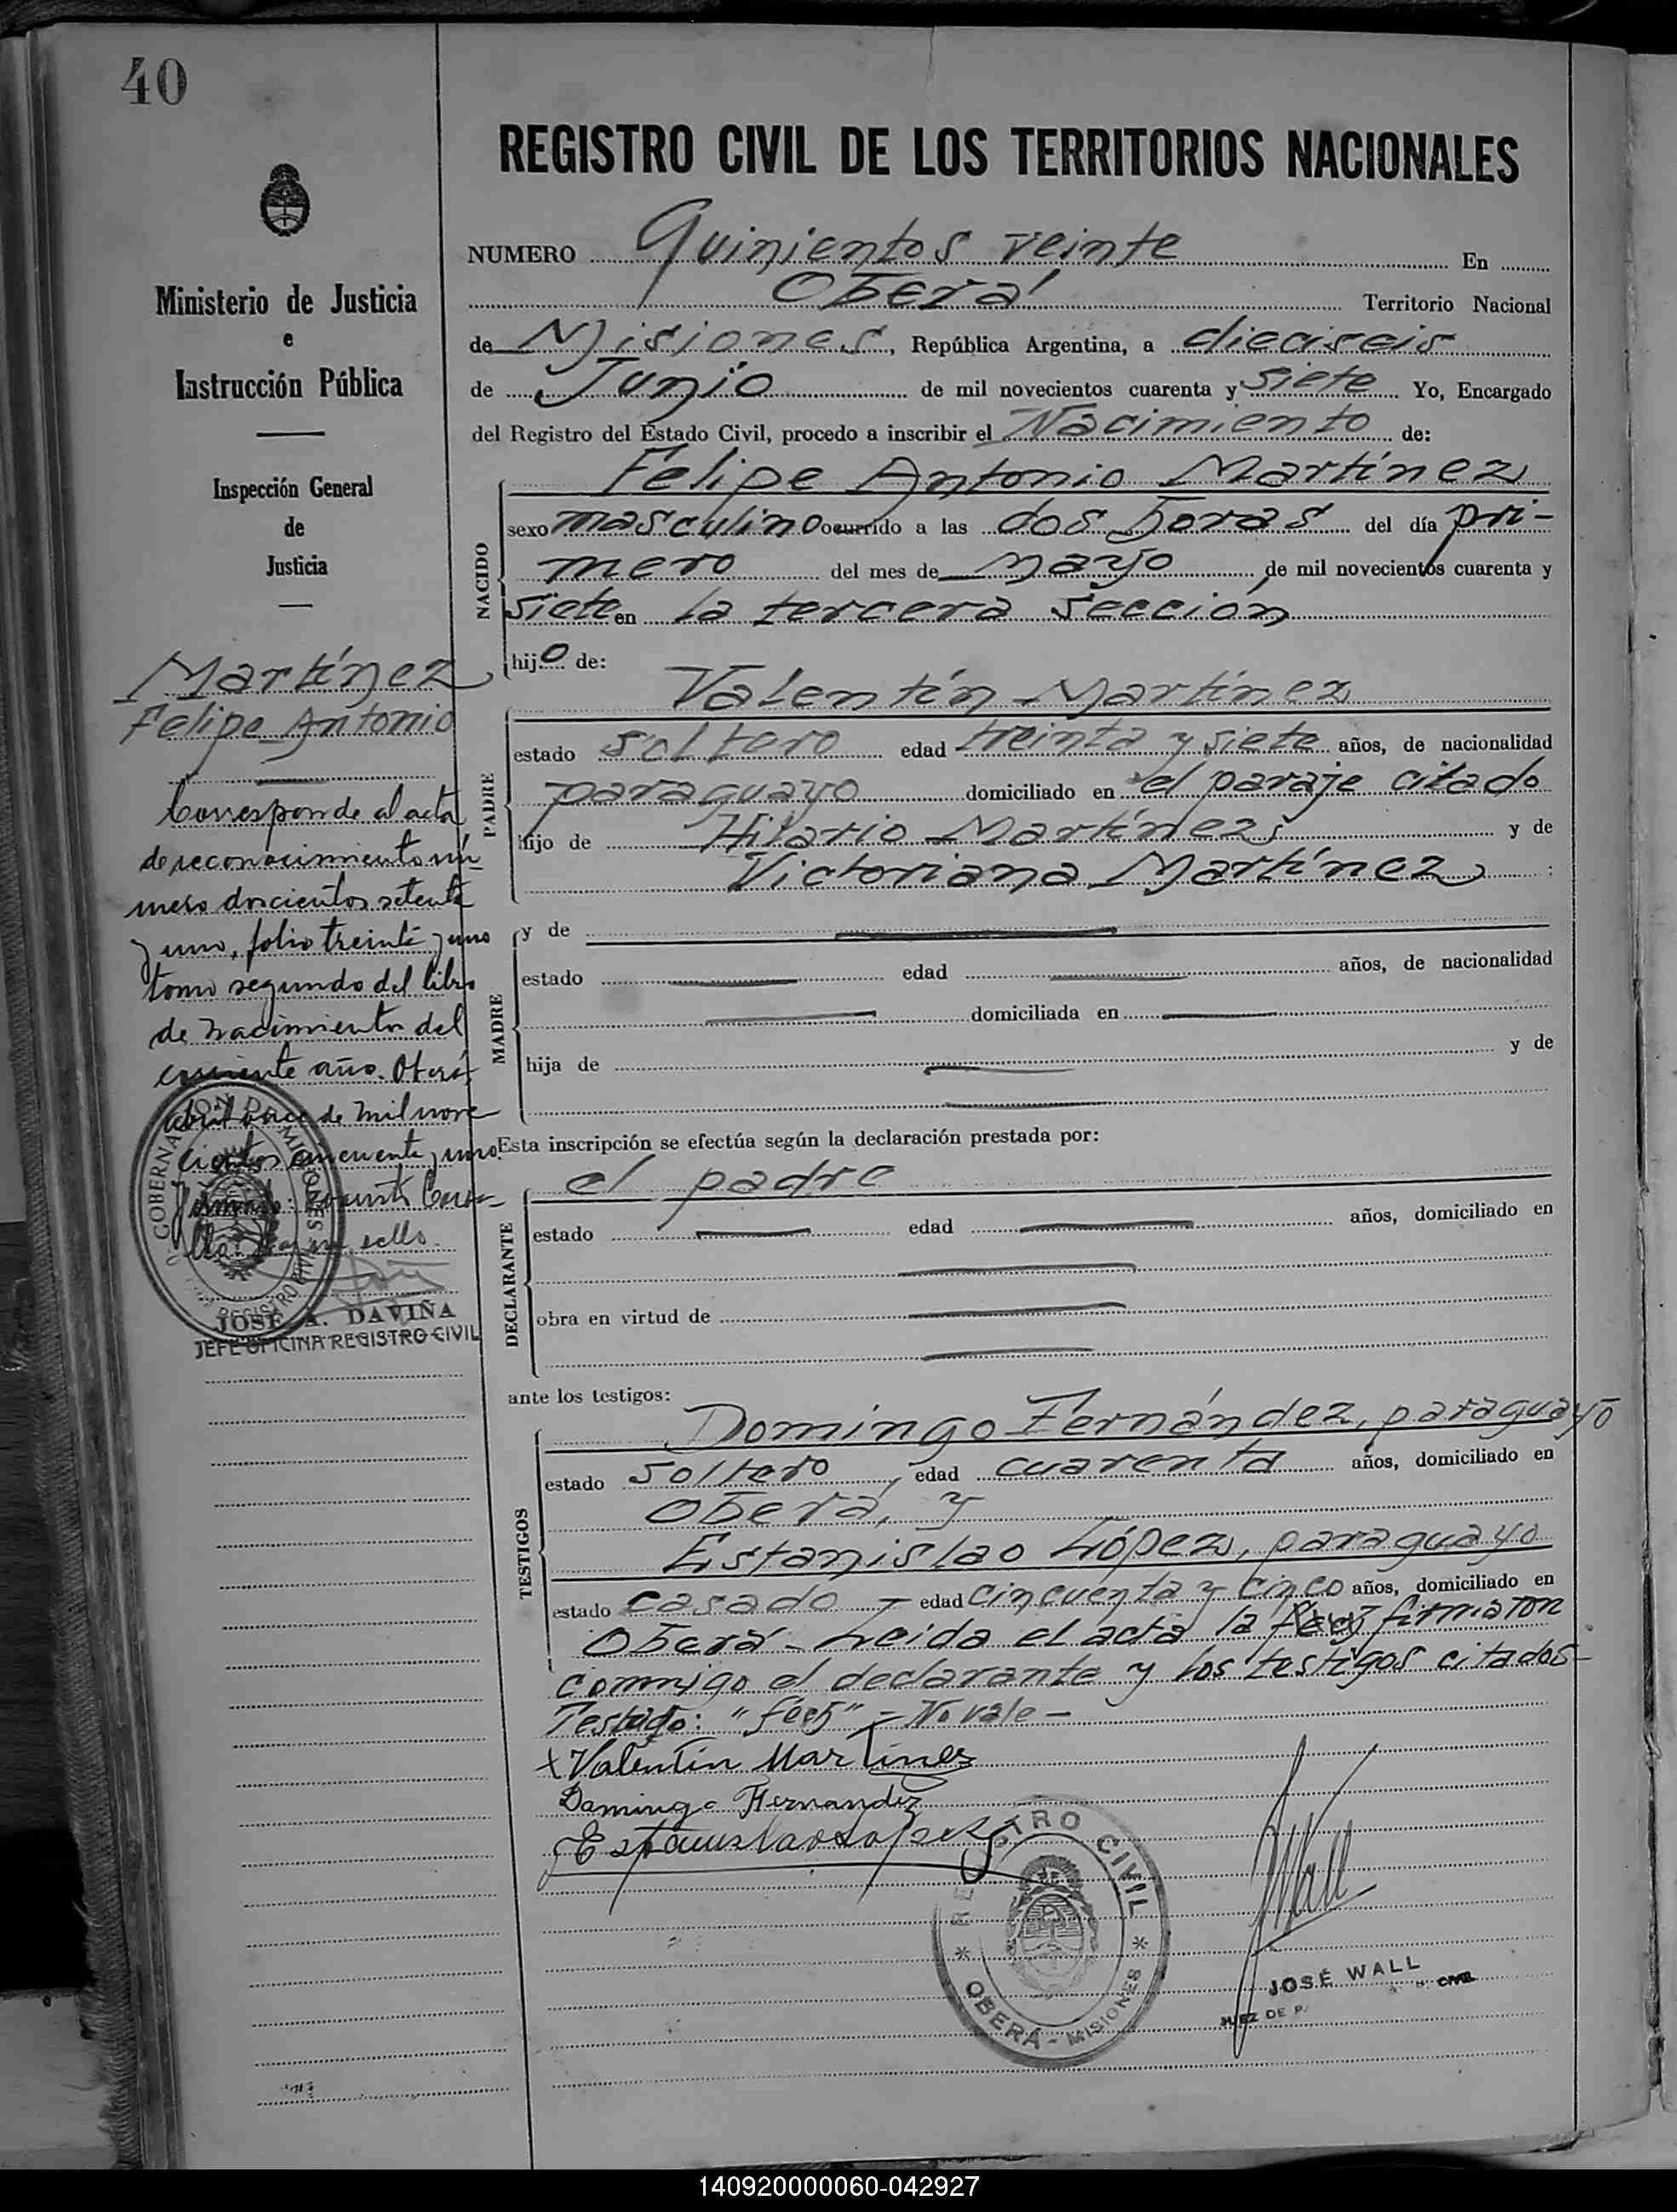 40
REGISTRO CIVIL DE LOS TERRITORIOS NACIONALES
NUMERO Quinientos veinte En
Oberá Territorio Nacional
de Misiones, República Argentina, a dieciseis
de Junio de mil novecientos cuarenta y siete Yo, Encargado
del Registro del Estado Civil, procedo a inscribir el Nacimiento de:
Ministerio de Justicia
e
Instrucción Pública
Inspección General
de
Justicia
Martínez
Felipe Antonio
Corresponde al acta
de reconocimiento nú-
mero doscientos setenta
y uno, folio treinta y uno
tomo segundo del libro
de Nacimientos del
corriente año. Oberá,
abril once de mil nove
cientos cincuenta y uno.
Firmado:
sello.
GOBERNACION DE MISIONES
REGISTRO CIVIL
JOSE A. DAVIÑA
JEFE OFICINA REGISTRO CIVIL
NACIDO
Felipe Antonio Martínez
sexo masculino ocurrido a las dos horas del día pri-
mero del mes de mayo de mil novecientos cuarenta y
siete en la tercera sección
hijo de:
PADRE
Valentín Martínez
estado soltero edad treinta y siete años, de nacionalidad
paraguayo domiciliado en el paraje citado
hijo de Hilario Martínez y de
Victoriana Martínez :
MADRE
y de
estado edad años, de nacionalidad
domiciliada en
hija de y de
Esta inscripción se efectúa según la declaración prestada por:
DECLARANTE
el padre
estado edad años, domiciliado en
obra en virtud de
ante los testigos:
TESTIGOS
Domingo Fernández, paraguayo
estado soltero, edad cuarenta años, domiciliado en
Oberá, y
Estanislao López, paraguayo
estado casado - edad cincuenta y cinco años, domiciliado en
Oberá - Leida el acta la firmaron
conmigo el declarante y los testigos citados-
Testado: "fech" - No vale -
x Valentin Martines
Domingo Hernandez
Estanislao Lopez
REGISTRO CIVIL
* OBERÁ - MISIONES *
JWall
JOSÉ WALL
JUEZ DE P. CIVIL
140920000060-042927